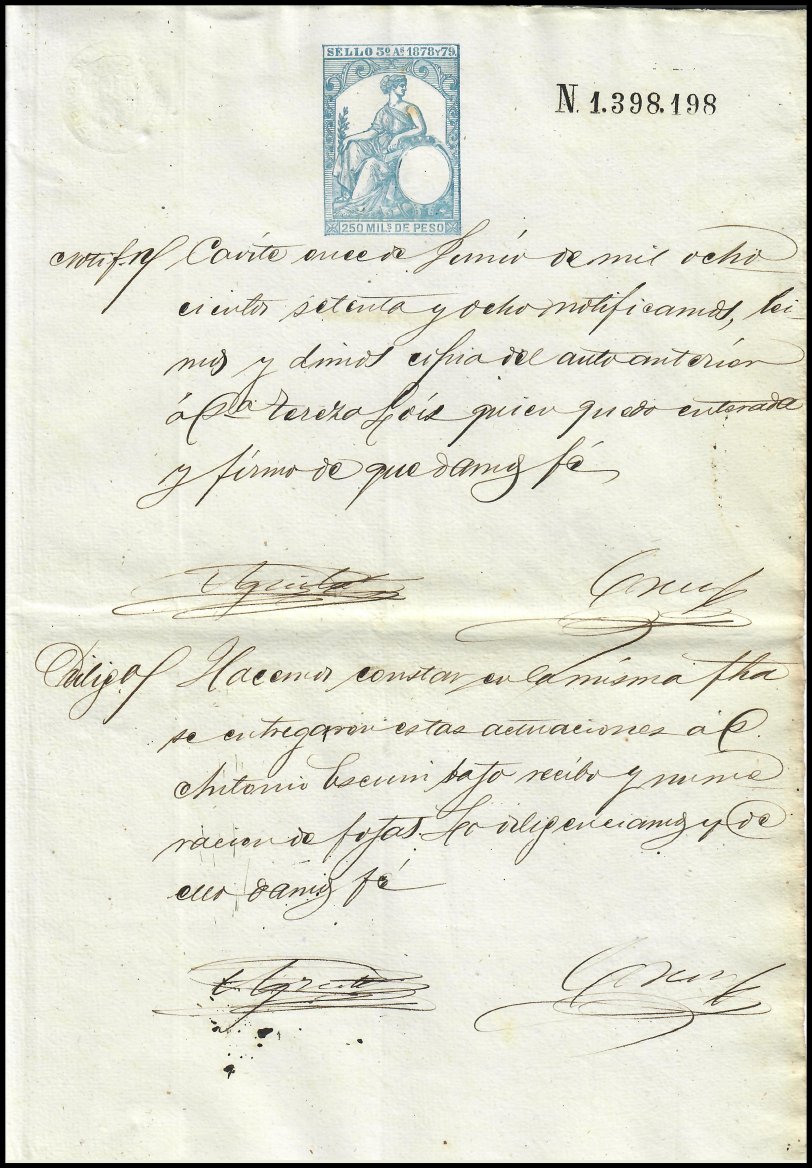 SELLO 3º Aˢ 1878 Y 79.
N. 1.398.198
250 MILˢ DE PESO
Notifⁿ Cavite once de Junio de mil ocho
cientos setenta y ocho notificamos, lei-
mos y dimos copia del auto anterior
á Dª Tereza quien quedo enterada
y firmo de que damos fé
Diligª Hacemos constar en la misma fha
se entregaron estas actuaciones á D.
Antonio bajo recibo y nume
racion de fojas. Lo diligenciamos y de
ello damos fé